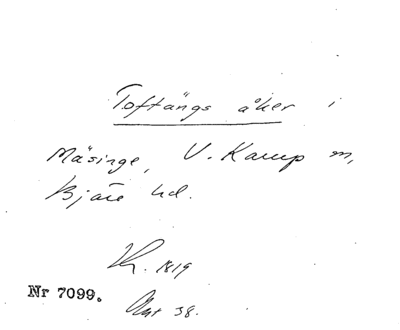 Toftängs åker i
Mäsinge, V. Karup sn,
Bjäre hd.
1819
Nr 7099.
38.